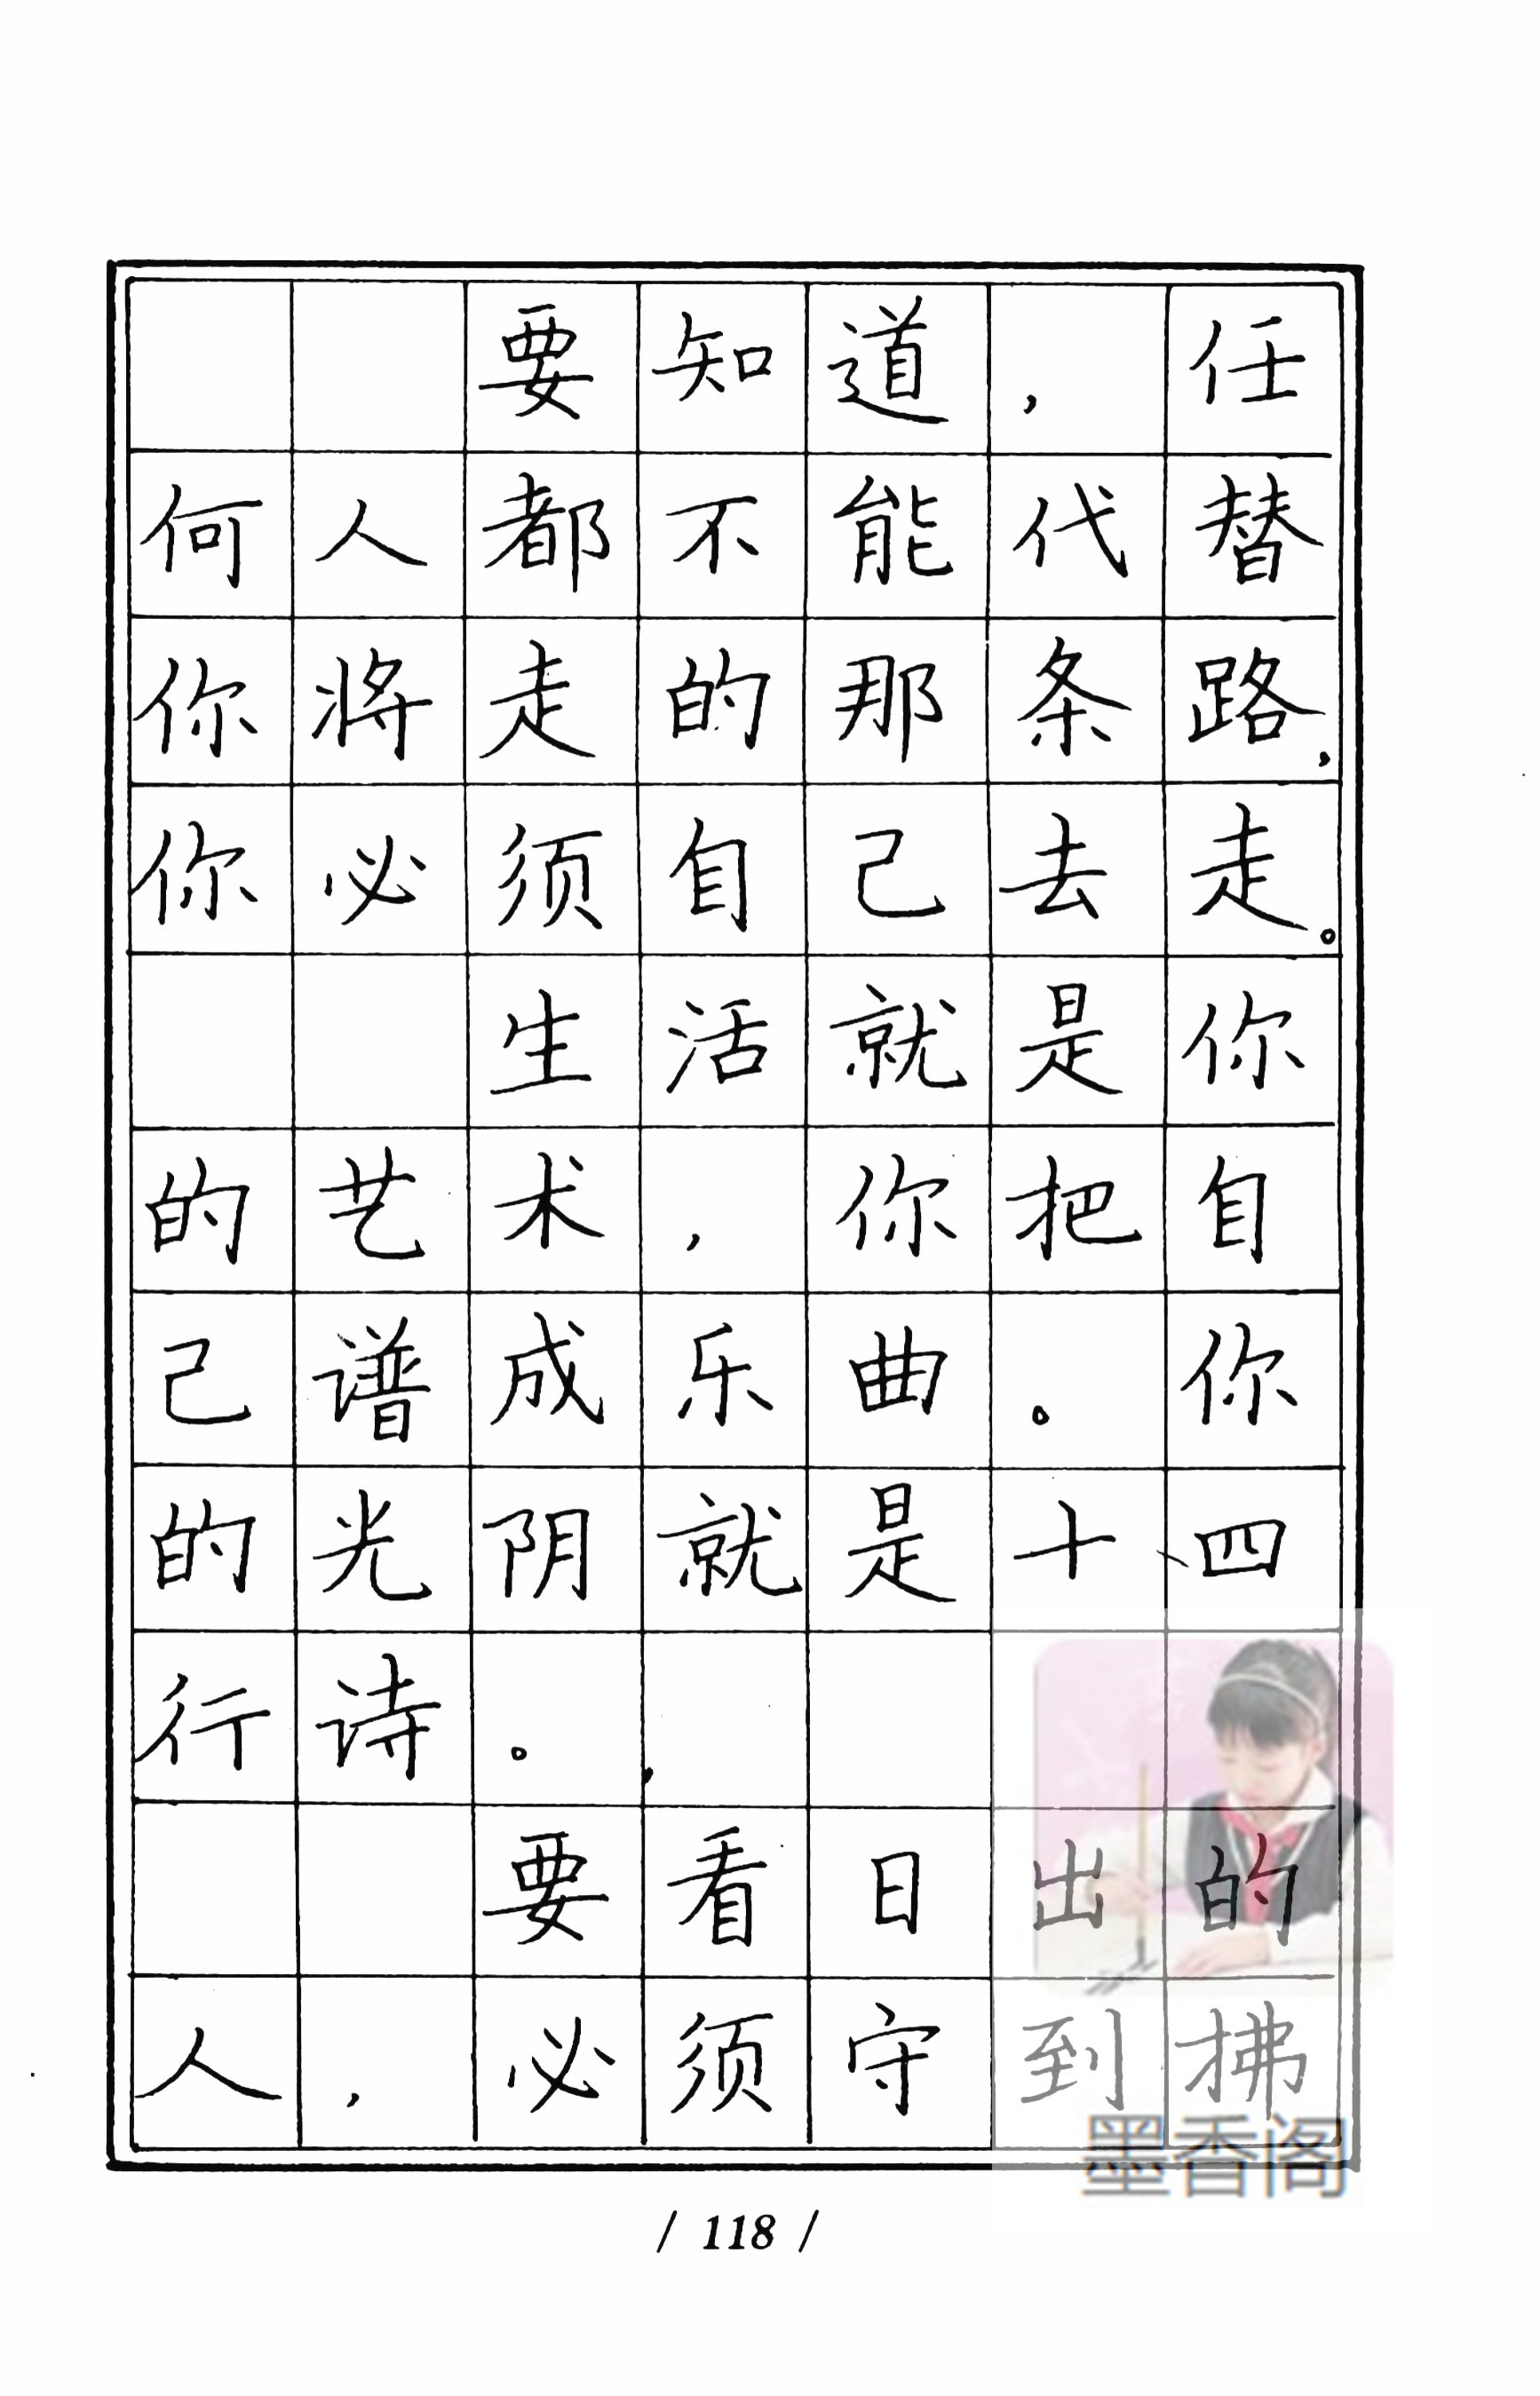 要知道，任
何人都不能代替
你将走的那条路，
你必须自己去走。
生活就是你
的艺术，你把自
己谱成乐曲。你
的光阴就是十四
行诗。
要看日出的
人，必须守到拂
墨香阁
/ 118 /